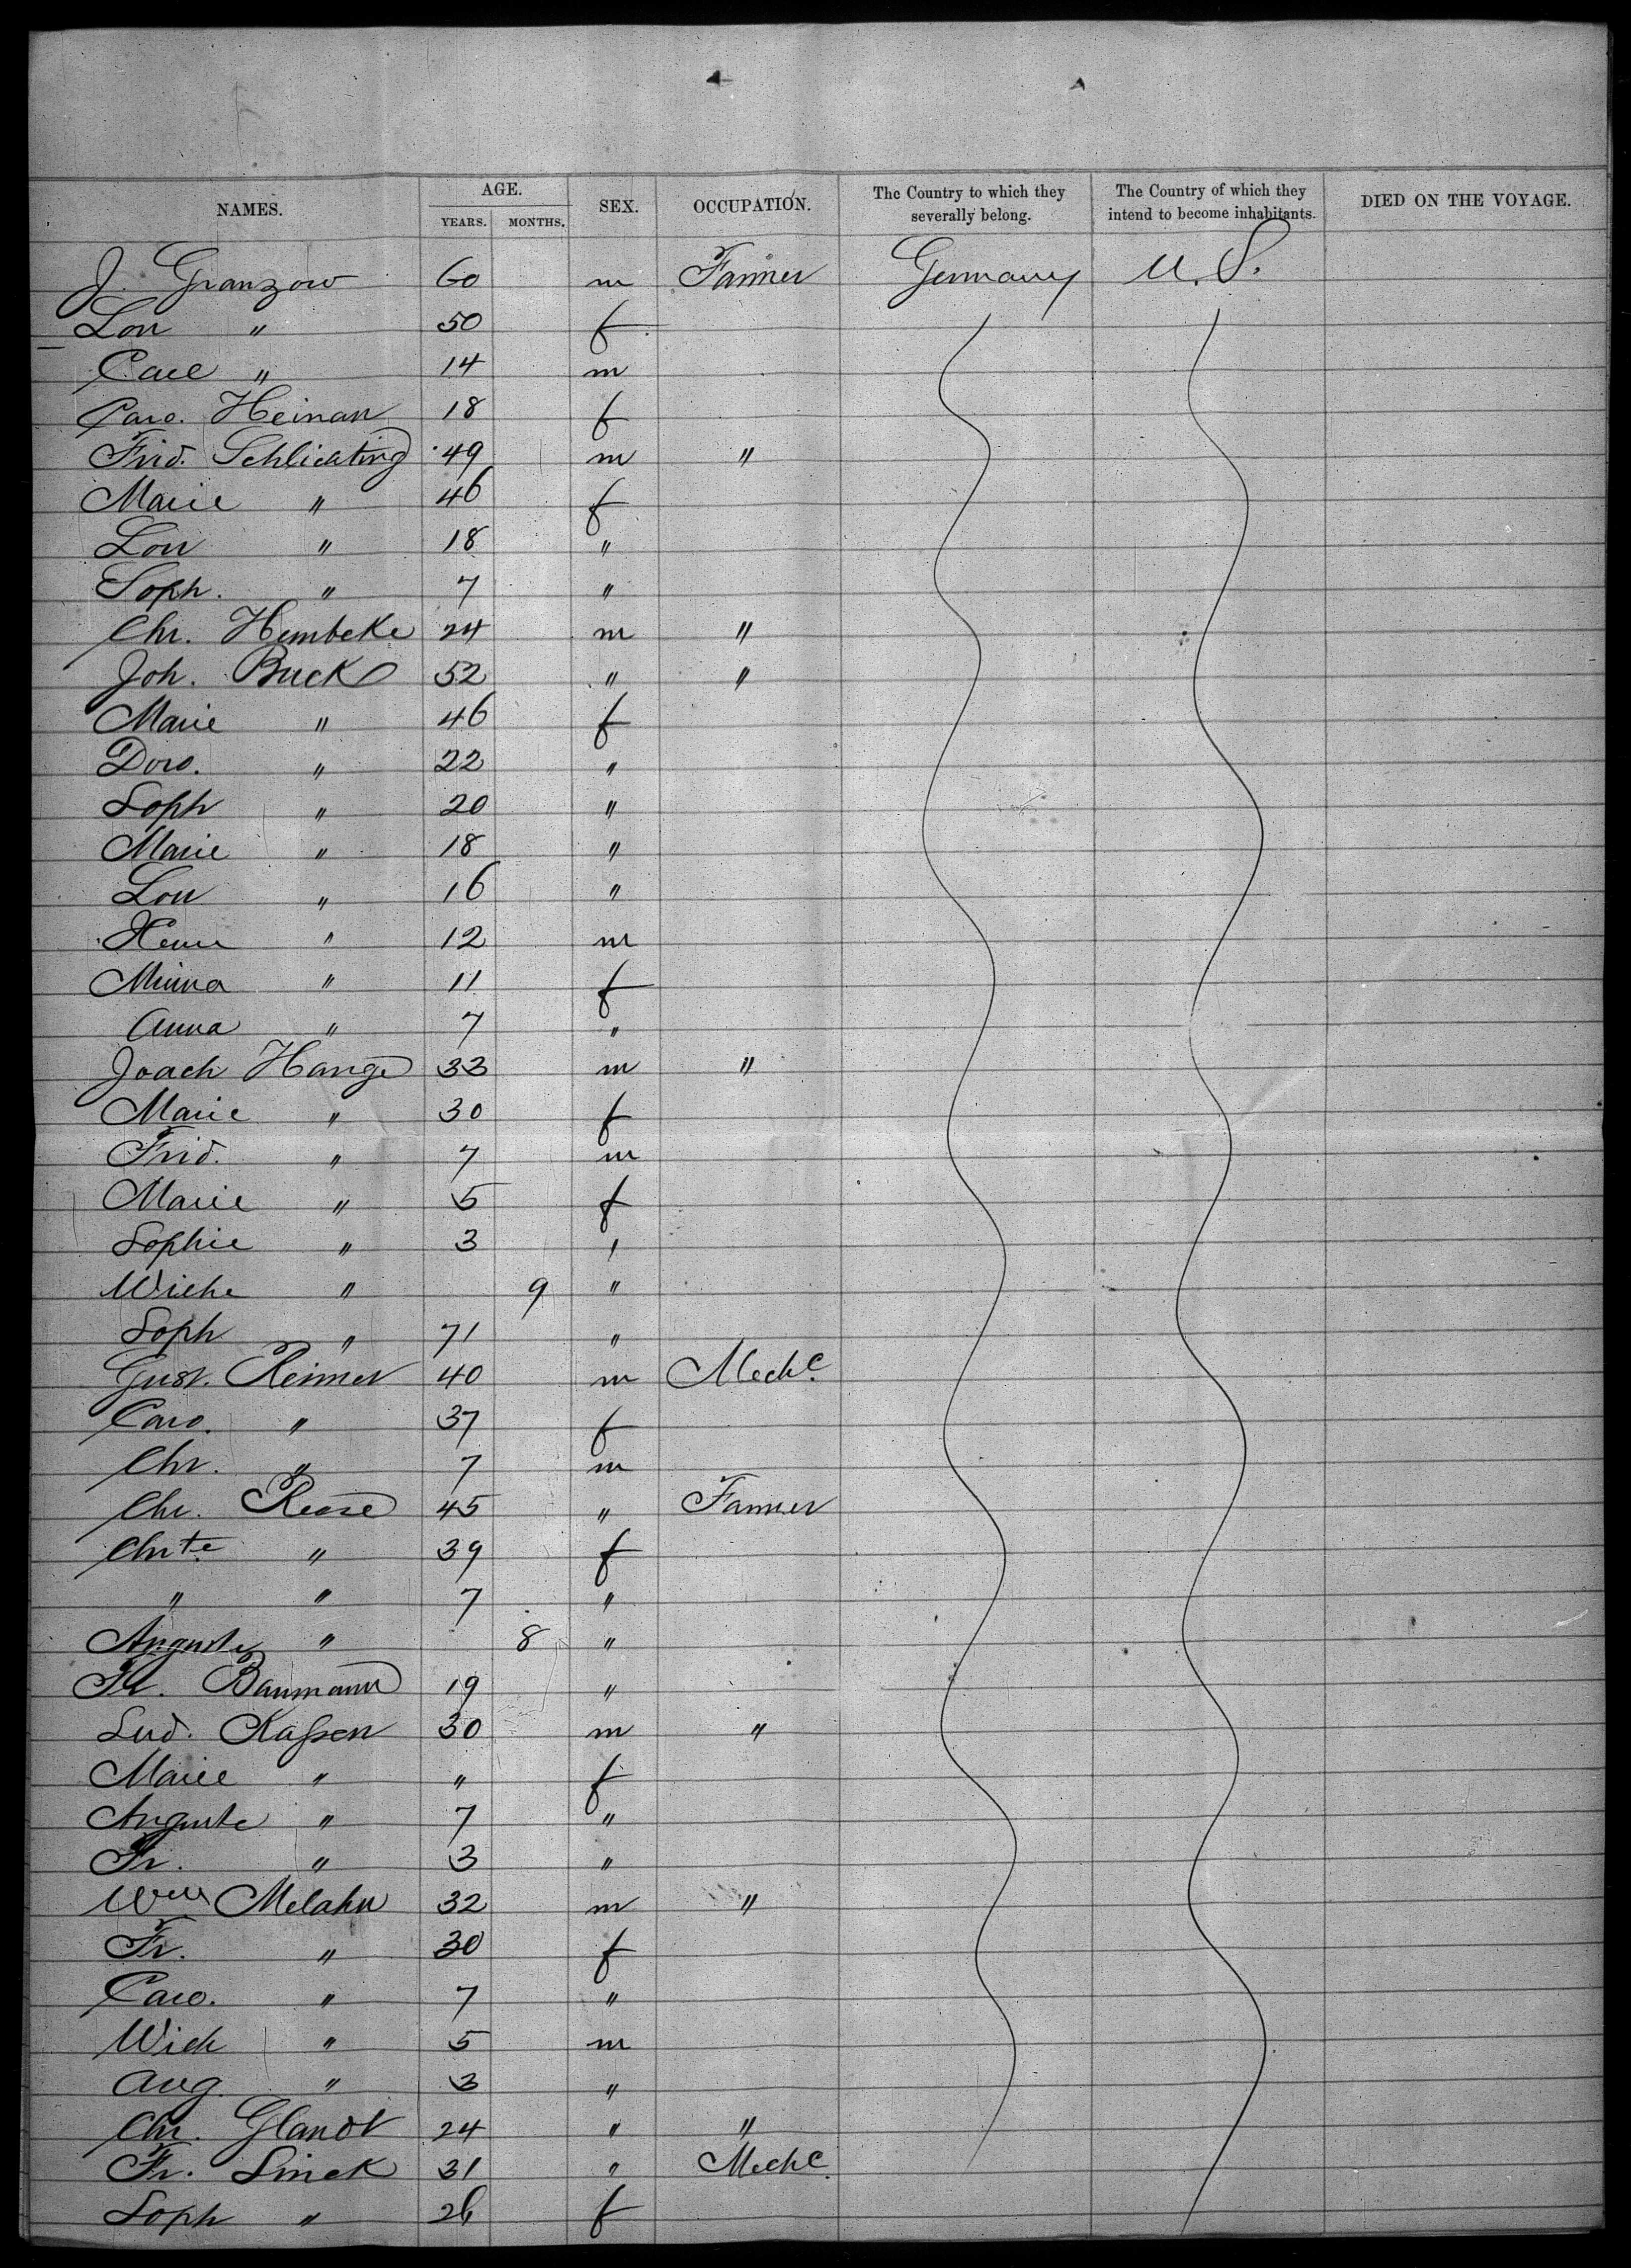 NAMES. AGE. YEARS. MONTHS. SEX. OCCUPATION. The Country to which they severally belong. The Country of which they intend to become inhabitants. DIED ON THE VOYAGE.
J. Granzow 60 m Farmer Germany U.S.
Lou " 50 f
Carl " 14 m
Caro. Heinan 18 f
Frid. Schlichting 49 m "
Marie " 46 f
Lou " 18 "
Soph. " 7 "
Chr. Hembeke 24 m "
Joh. Buck 52 " "
Marie " 46 f
Doro. " 22 "
Soph " 20 "
Marie " 18 "
Lou " 16 "
Henr " 12 m
Minna " 11 f
Anna " 7 "
Joach Hange 33 m "
Marie " 30 f
Frid. " 7 m
Marie " 5 f
Sophie " 3 "
Wilhe " 9 "
Soph " 71 "
Gust. Reimer 40 m Mechc.
Caro. " 37 f
Chr. " 7 m
Chr. Reose 45 " Farmer
Chrte " 39 f
" " 7 "
Auguste " 8 "
Fr. Baumann 19 "
Lud. Kassen 30 m "
Marie " " f
Auguste " 7 "
Fr. " 3 "
Wm Melahn 32 m "
Fr. " 30 f
Caro. " 7 "
Wilh " 5 m
Aug. " 3 "
Chr. Glandt 24 " "
Fr. Linck 31 " Mechc.
Soph " 26 f